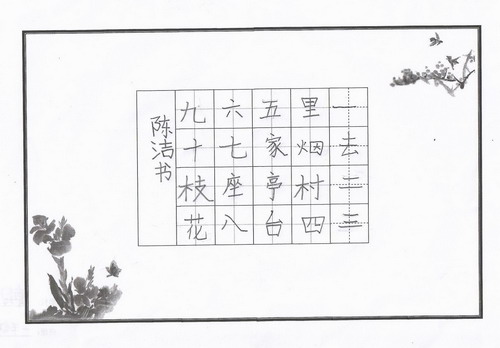 一去二三
里烟村四
五家亭台
六七座八
九十枝花
陈洁书